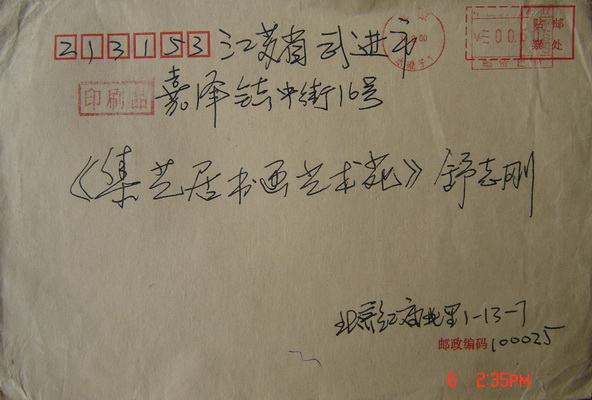 213153 江苏省武进市
印刷品 嘉泽镇中街16号
《集艺居书画艺术苑》 舒志刚
北京红庙北里1-13-7
邮政编码 100025
贴邮
票处
6 2:35PM